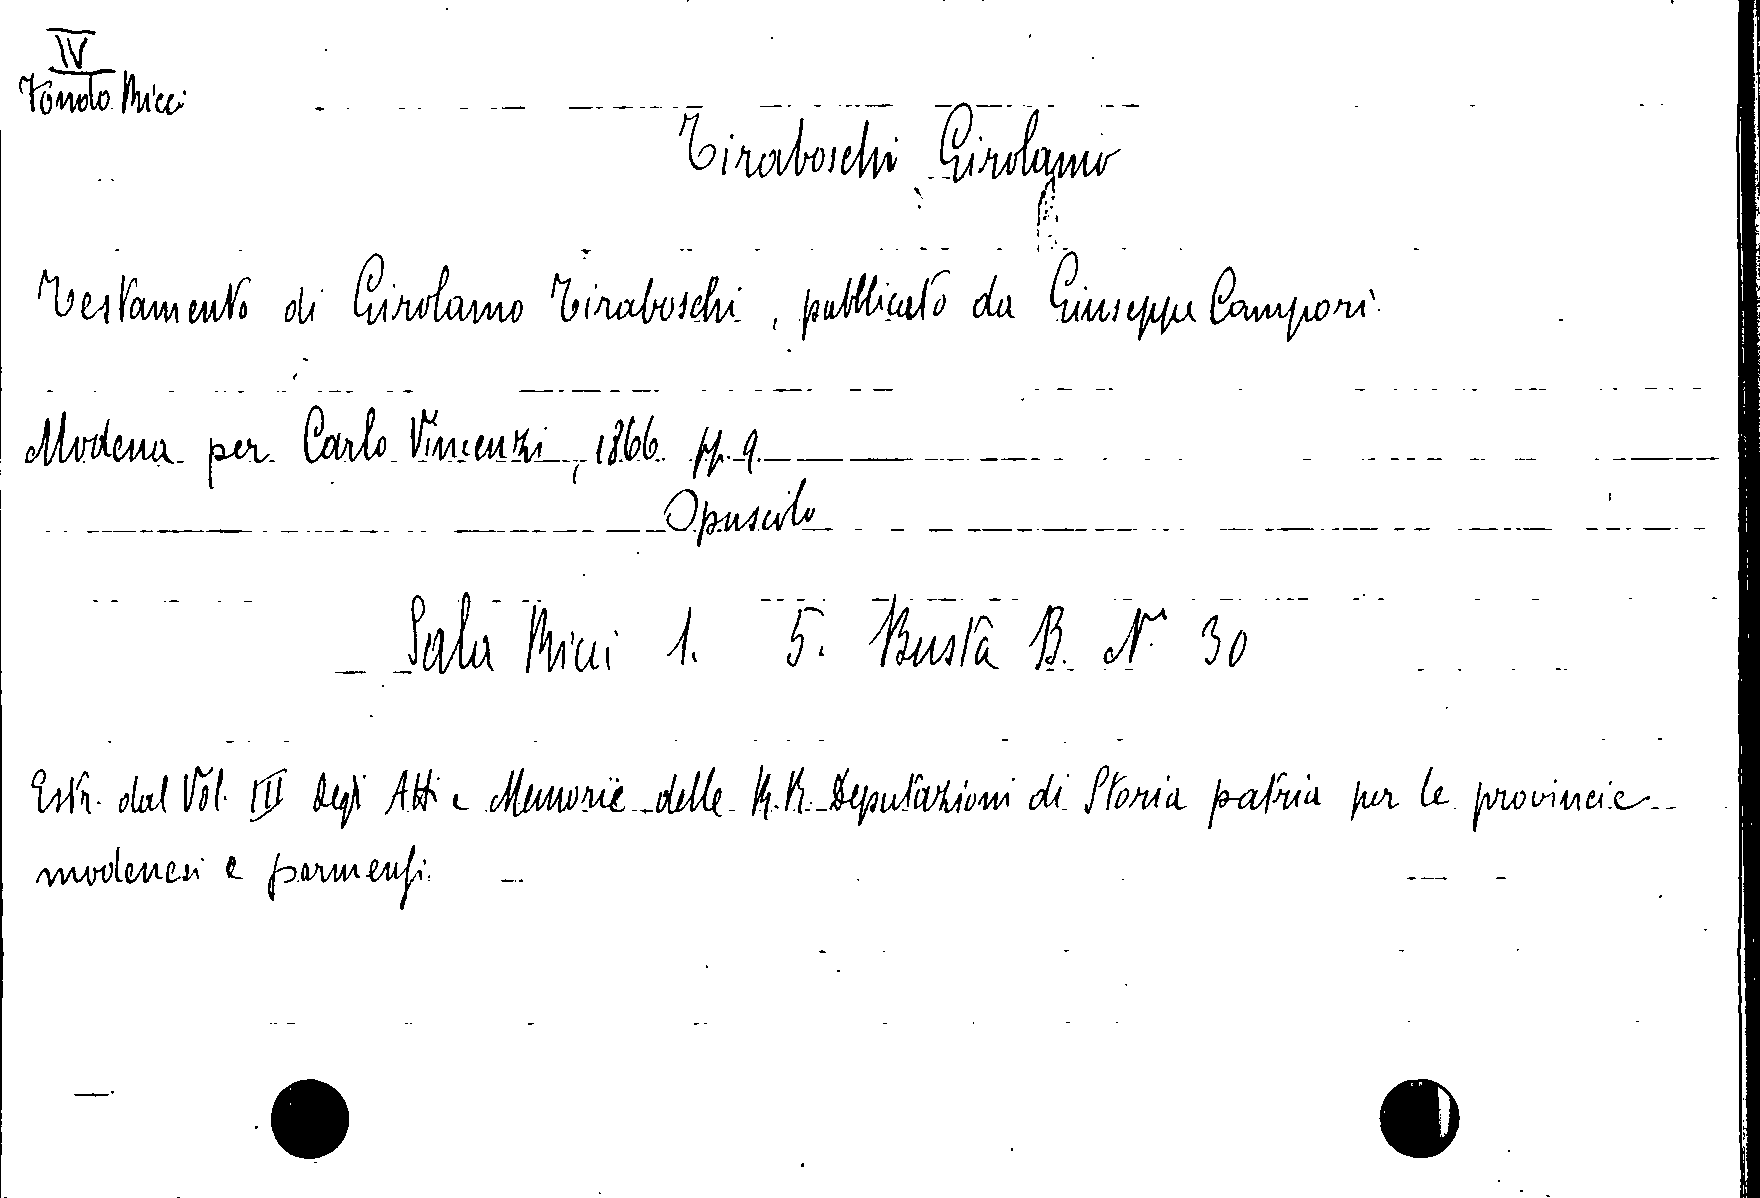 IV
Fondo Ricci
Tiraboschi Girolamo
Testamento di Girolamo Tiraboschi, pubblicato da Giuseppe Campori.
Modena per Carlo Vincenzi, 1866 pp. 9.
Opuscolo
Sala Ricci 1. 5. Busta B. N. 30
Estr. dal Vol. III degli Atti e Memorie delle R.R. Deputazioni di Storia patria per le provincie
modenesi e parmensi.